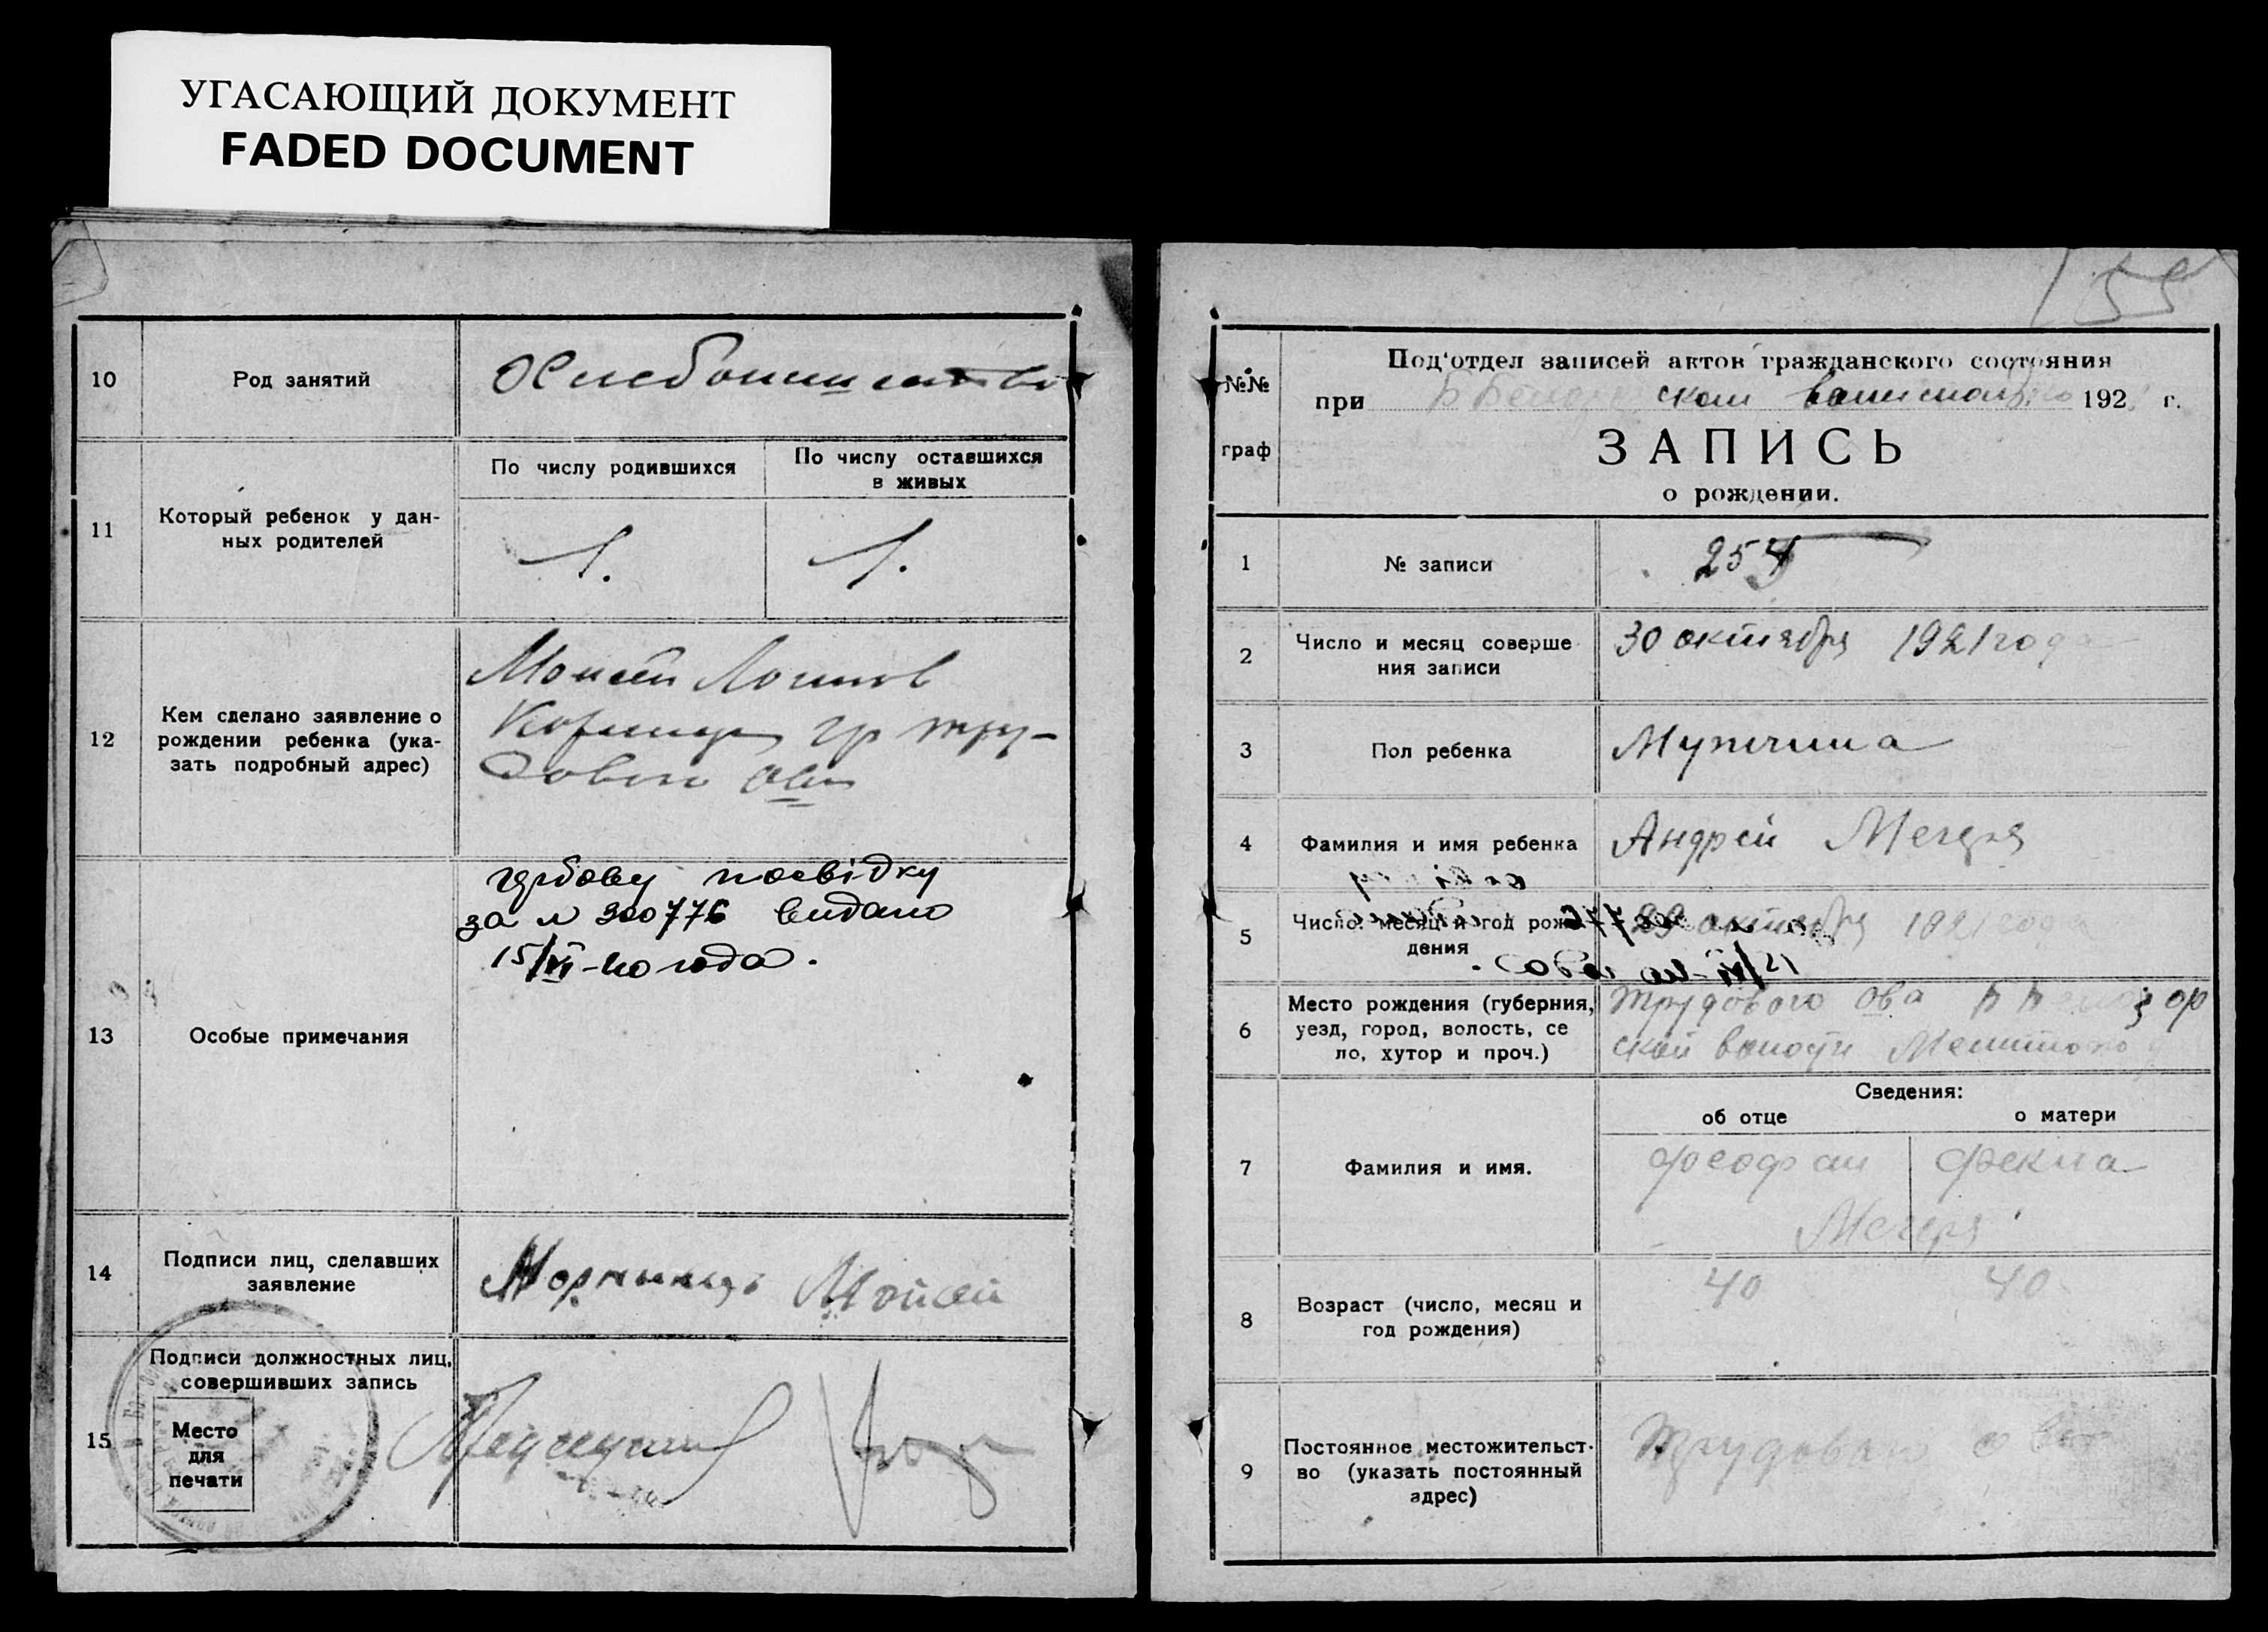 УГАСАЮЩИЙ ДОКУМЕНТ
FADED DOCUMENT
10
Род занятий
11
Который ребенок у дан-
ных родителей
По числу родившихся
По числу оставшихся
в живых
1.
1.
12
Кем сделано заявление о
рождении ребенка (ука-
зать подробный адрес)
Моисей
гр тру-
дового ова
13
Особые примечания
гербову посвідку
за № 300776 видано
15/VI-40 года.
14
Подписи лиц, сделавших
заявление
Мойсей
15
Подписи должностных лиц,
совершивших запись
Место
для
печати
155
№№
граф
Под'отдел записей актов гражданского состояния
при ской 192 г.
ЗАПИСЬ
о рождении.
1
№ записи
254
2
Число и месяц соверше
ния записи
30 октября 1921 года
3
Пол ребенка
Мужчина
4
Фамилия и имя ребенка
Андрей Мегеря
5
Число. месяц и год рож
дения
29 октября 1921 года
6
Место рождения (губерния,
уезд, город, волость, се
ло, хутор и проч.)
Трудового Ова
ской волости
7
Фамилия и имя.
Сведения:
об отце
о матери
Феофан
Фекла
Мегеря
8
Возраст (число, месяц и
год рождения)
40
40
9
Постоянное местожительст-
во (указать постоянный
адрес)